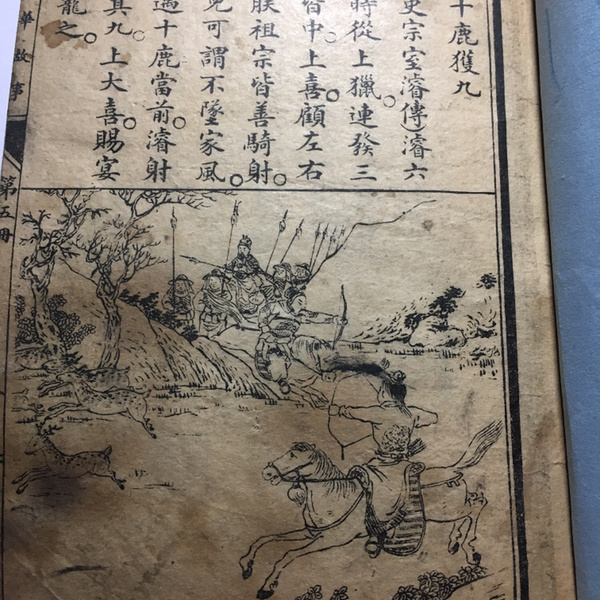 十鹿獲九
史宗室濬傳)濬六
時從上獵連發三
皆中。上喜。顧左右
朕祖宗皆善騎射。
兒可謂不墜家風
遇十鹿當前。濬射
其九。上大喜。賜宴
寵之。
華故事
第五冊